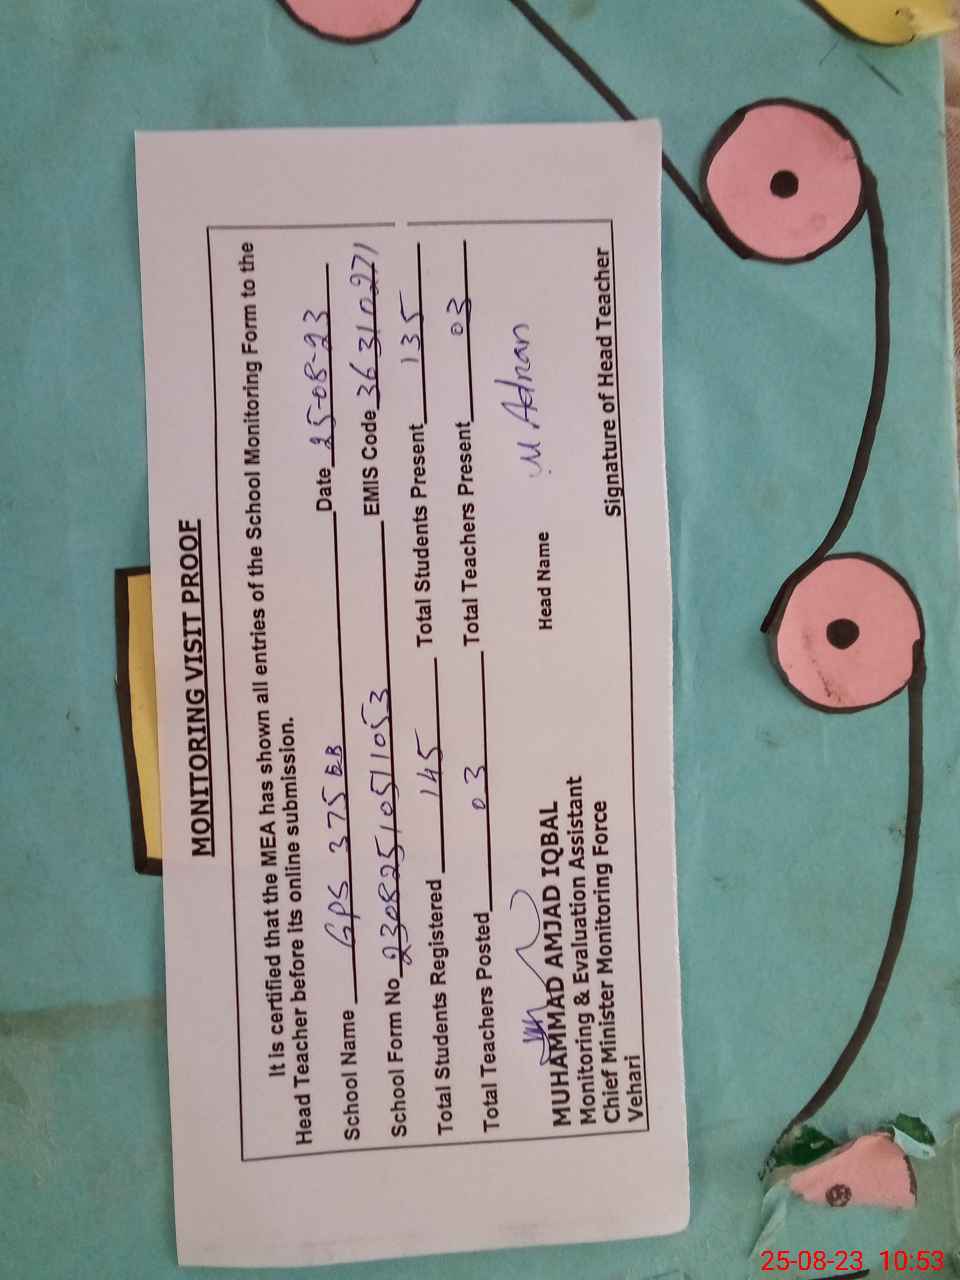 MONITORING VISIT PROOF
It is certified that the MEA has shown all entries of the School Monitoring Form to the
Head Teacher before its online submission.
School Name GPS 375 EB Date 25-08-23
School Form No 230825105110​53 EMIS Code 36310271
Total Students Registered 145 Total Students Present 135
Total Teachers Posted 03 Total Teachers Present 03
Head Name M Adnan
MUHAMMAD AMJAD IQBAL
Monitoring & Evaluation Assistant
Chief Minister Monitoring Force
Vehari
Signature of Head Teacher
25-08-23 10:53